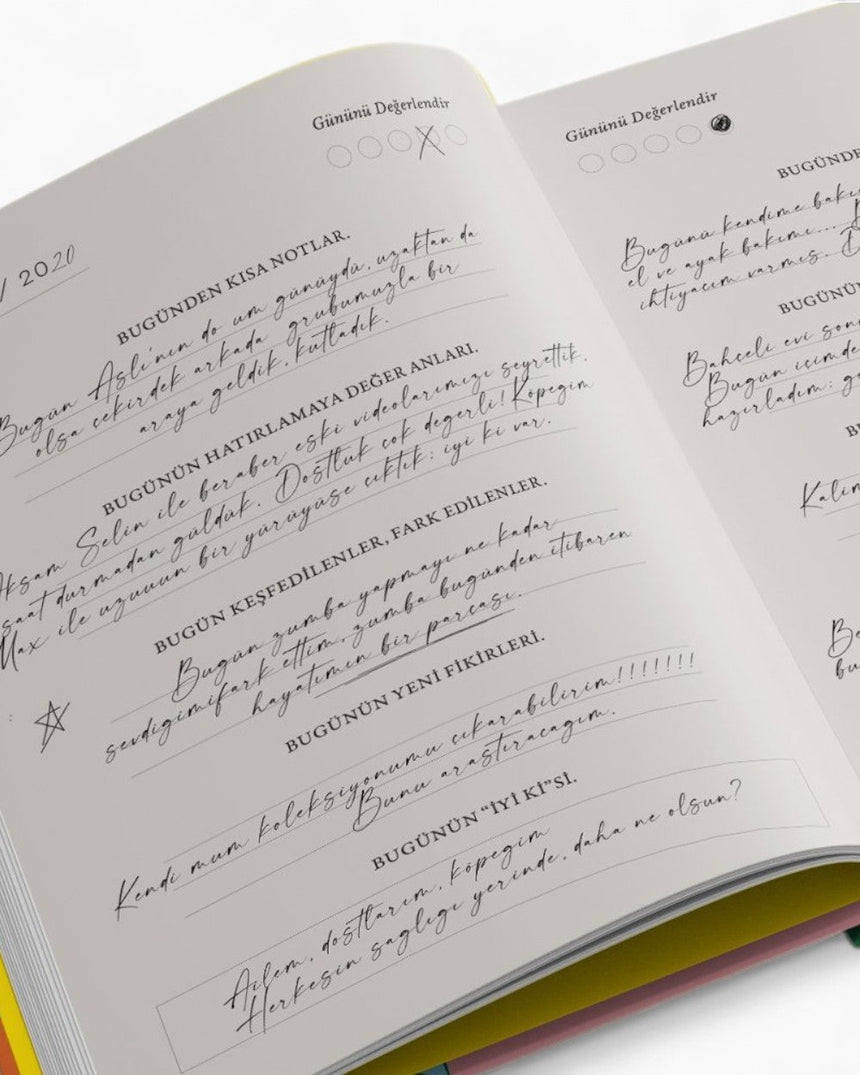 Gününü Değerlendir
/ 2020
BUGÜNDEN KISA NOTLAR.
Bugün Aslı'nın do um günüydü, uzaktan da
olsa cekirdek arkada grubumuzla bir
araya geldik, kutladık.
BUGÜNÜN HATIRLAMAYA DEĞER ANLARI.
Aksam Selin ile beraber eski videolarımızı seyrettik.
saat durmadan güldük. Dostluk cok degerli! Köpegim
Max ile uzuuun bir yürüyüse cıktık; iyi ki var.
BUGÜN KEŞFEDİLENLER, FARK EDİLENLER.
Bugün zumba yapmayı ne kadar
sevdigimifark ettim, zumba bugünden itibaren
hayatımın bir parcası.
BUGÜNÜN YENİ FİKİRLERİ.
Kendi mum koleksiyonumu cıkarabilirim!!!!!!!
Bunu arastıracagım.
BUGÜNÜN “İYİ Kİ”Sİ.
Ailem, dostlarım, köpegim
Herkesin saglıgı yerinde, daha ne olsun?
Gününü Değerlendir
BUGÜNDE
Bugünü kendime bakı
el ve ayak bakımı...
ihtiyacım varmıs. D
BUGÜNÜ
Bahceli evi son
Bugün icimde
hazırladım; ge
BU
Kalın
Be
bu